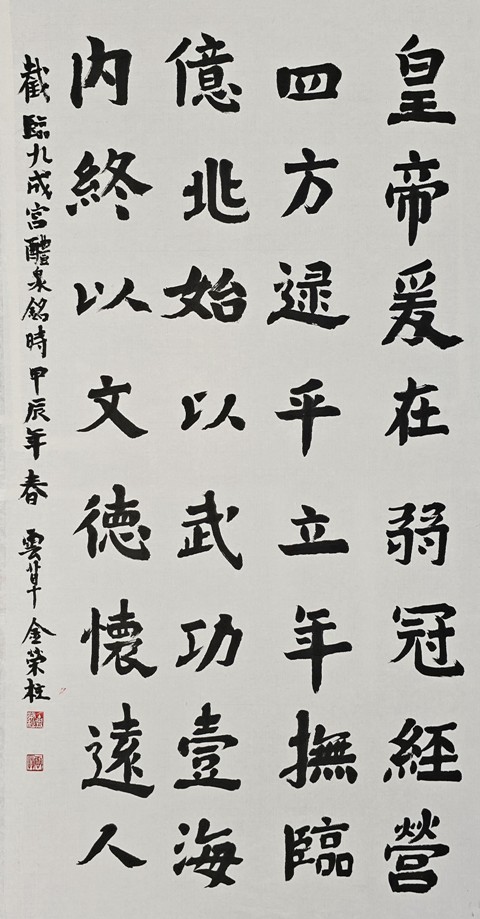 皇帝爰在弱冠經營
四方逯乎立年撫臨
億兆始以武功壹海
內終以文德懷遠人
截臨九成宮醴泉銘時甲辰年春 雲草 金榮柱